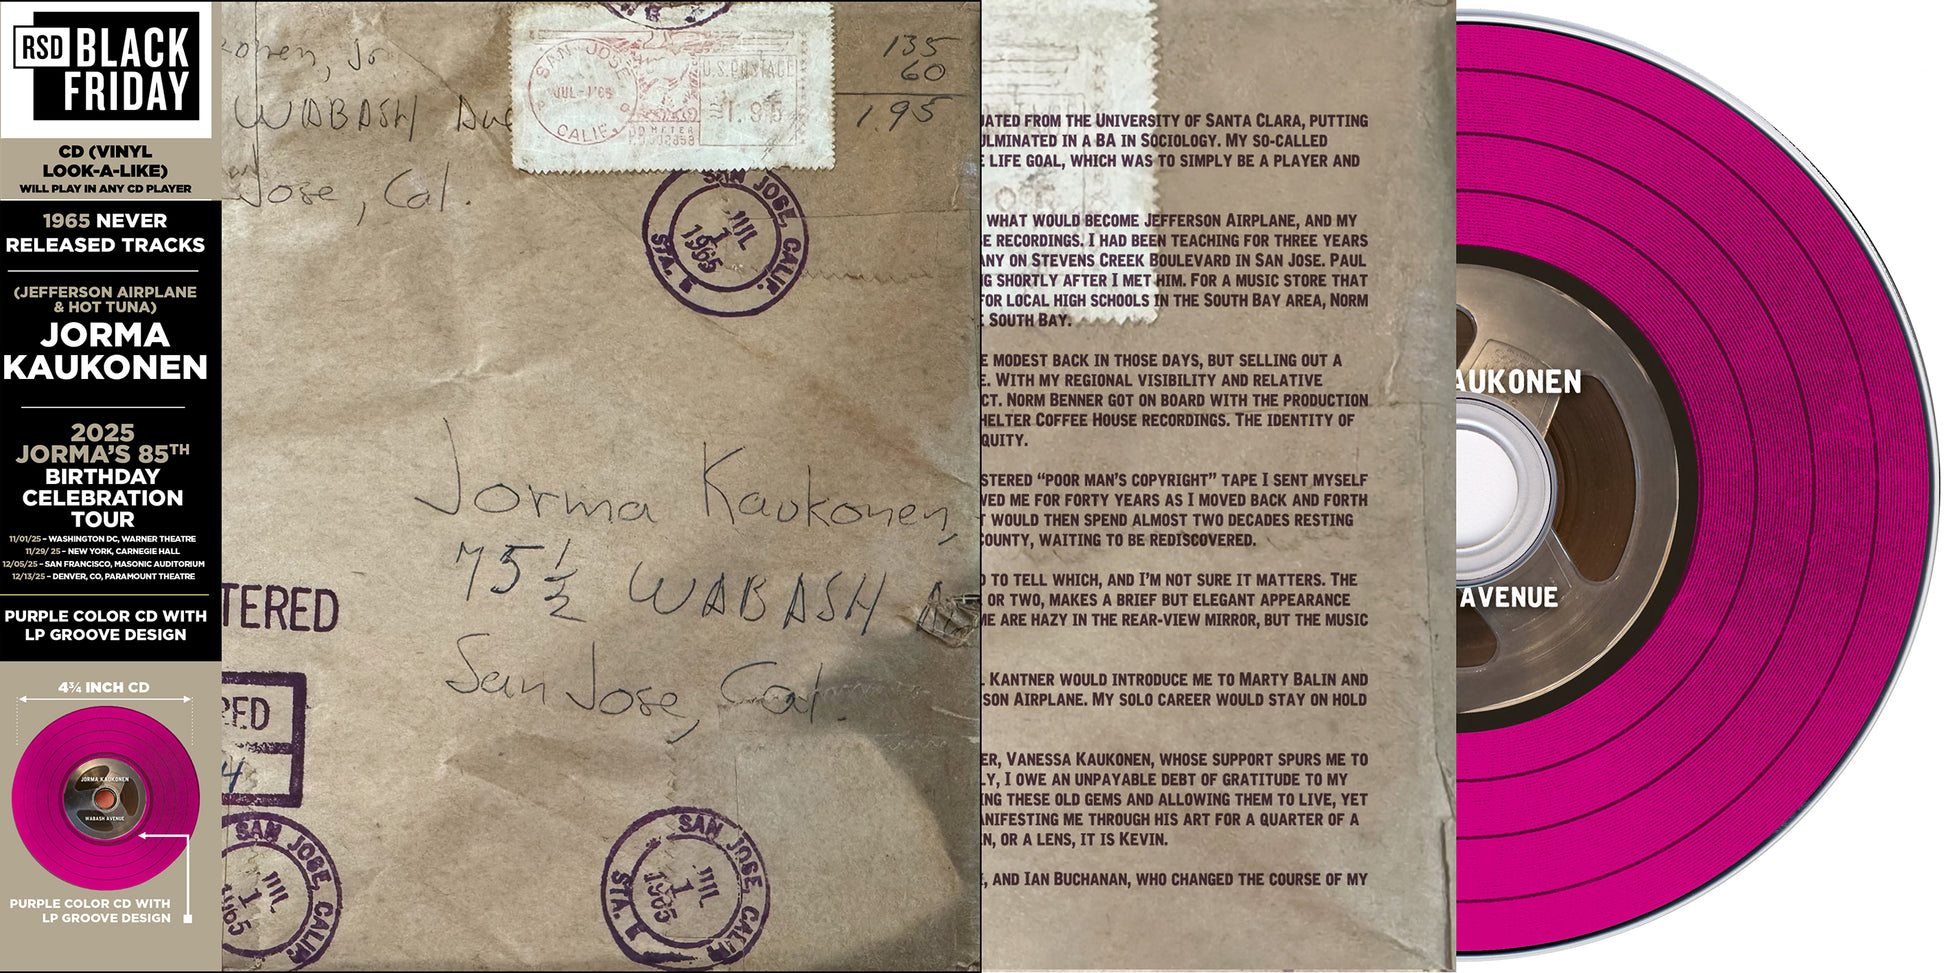 RSD BLACK
FRIDAY
CD (VINYL
LOOK-A-LIKE)
WILL PLAY IN ANY CD PLAYER
1965 NEVER
RELEASED TRACKS
(JEFFERSON AIRPLANE
& HOT TUNA)
JORMA
KAUKONEN
2025
JORMA'S 85TH
BIRTHDAY
CELEBRATION
TOUR
11/01/25 – WASHINGTON DC, WARNER THEATRE
11/29/25 – NEW YORK, CARNEGIE HALL
12/05/25 – SAN FRANCISCO, MASONIC AUDITORIUM
12/13/25 – DENVER, CO, PARAMOUNT THEATRE
PURPLE COLOR CD WITH
LP GROOVE DESIGN
4¾ INCH CD
JORMA KAUKONEN
WABASH AVENUE
PURPLE COLOR CD WITH
LP GROOVE DESIGN
konen, Jo
WABASH Ave
Jose, Cal.
SAN JOSE
JUL-1'65
CALIF.
U.S. POSTAGE
1.95
PB METER
135
60
1.95
SAN JOSE, CALIF.
JUL
1
1965
STA.
Jorma Kaukonen,
75 ½ WABASH
San Jose, Cal.
TERED
RED
4
SAN JOSE, CALIF.
JUL
1
1965
SAN JOSE, CALIF.
JUL
1
1965
STA.
UATED FROM THE UNIVERSITY OF SANTA CLARA, PUTTING
ULMINATED IN A BA IN SOCIOLOGY. MY SO-CALLED
E LIFE GOAL, WHICH WAS TO SIMPLY BE A PLAYER AND
WHAT WOULD BECOME JEFFERSON AIRPLANE, AND MY
SE RECORDINGS. I HAD BEEN TEACHING FOR THREE YEARS
ANY ON STEVENS CREEK BOULEVARD IN SAN JOSE. PAUL
NG SHORTLY AFTER I MET HIM. FOR A MUSIC STORE THAT
FOR LOCAL HIGH SCHOOLS IN THE SOUTH BAY AREA, NORM
E SOUTH BAY.
E MODEST BACK IN THOSE DAYS, BUT SELLING OUT A
E. WITH MY REGIONAL VISIBILITY AND RELATIVE
CT. NORM BENNER GOT ON BOARD WITH THE PRODUCTION
HELTER COFFEE HOUSE RECORDINGS. THE IDENTITY OF
QUITY.
STERED “POOR MAN'S COPYRIGHT” TAPE I SENT MYSELF
WED ME FOR FORTY YEARS AS I MOVED BACK AND FORTH
T WOULD THEN SPEND ALMOST TWO DECADES RESTING
COUNTY, WAITING TO BE REDISCOVERED.
D TO TELL WHICH, AND I'M NOT SURE IT MATTERS. THE
OR TWO, MAKES A BRIEF BUT ELEGANT APPEARANCE
ME ARE HAZY IN THE REAR-VIEW MIRROR, BUT THE MUSIC
L KANTNER WOULD INTRODUCE ME TO MARTY BALIN AND
SON AIRPLANE. MY SOLO CAREER WOULD STAY ON HOLD
ER, VANESSA KAUKONEN, WHOSE SUPPORT SPURS ME TO
LY, I OWE AN UNPAYABLE DEBT OF GRATITUDE TO MY
ING THESE OLD GEMS AND ALLOWING THEM TO LIVE, YET
ANIFESTING ME THROUGH HIS ART FOR A QUARTER OF A
N, OR A LENS, IT IS KEVIN.
E, AND IAN BUCHANAN, WHO CHANGED THE COURSE OF MY
AUKONEN
AVENUE